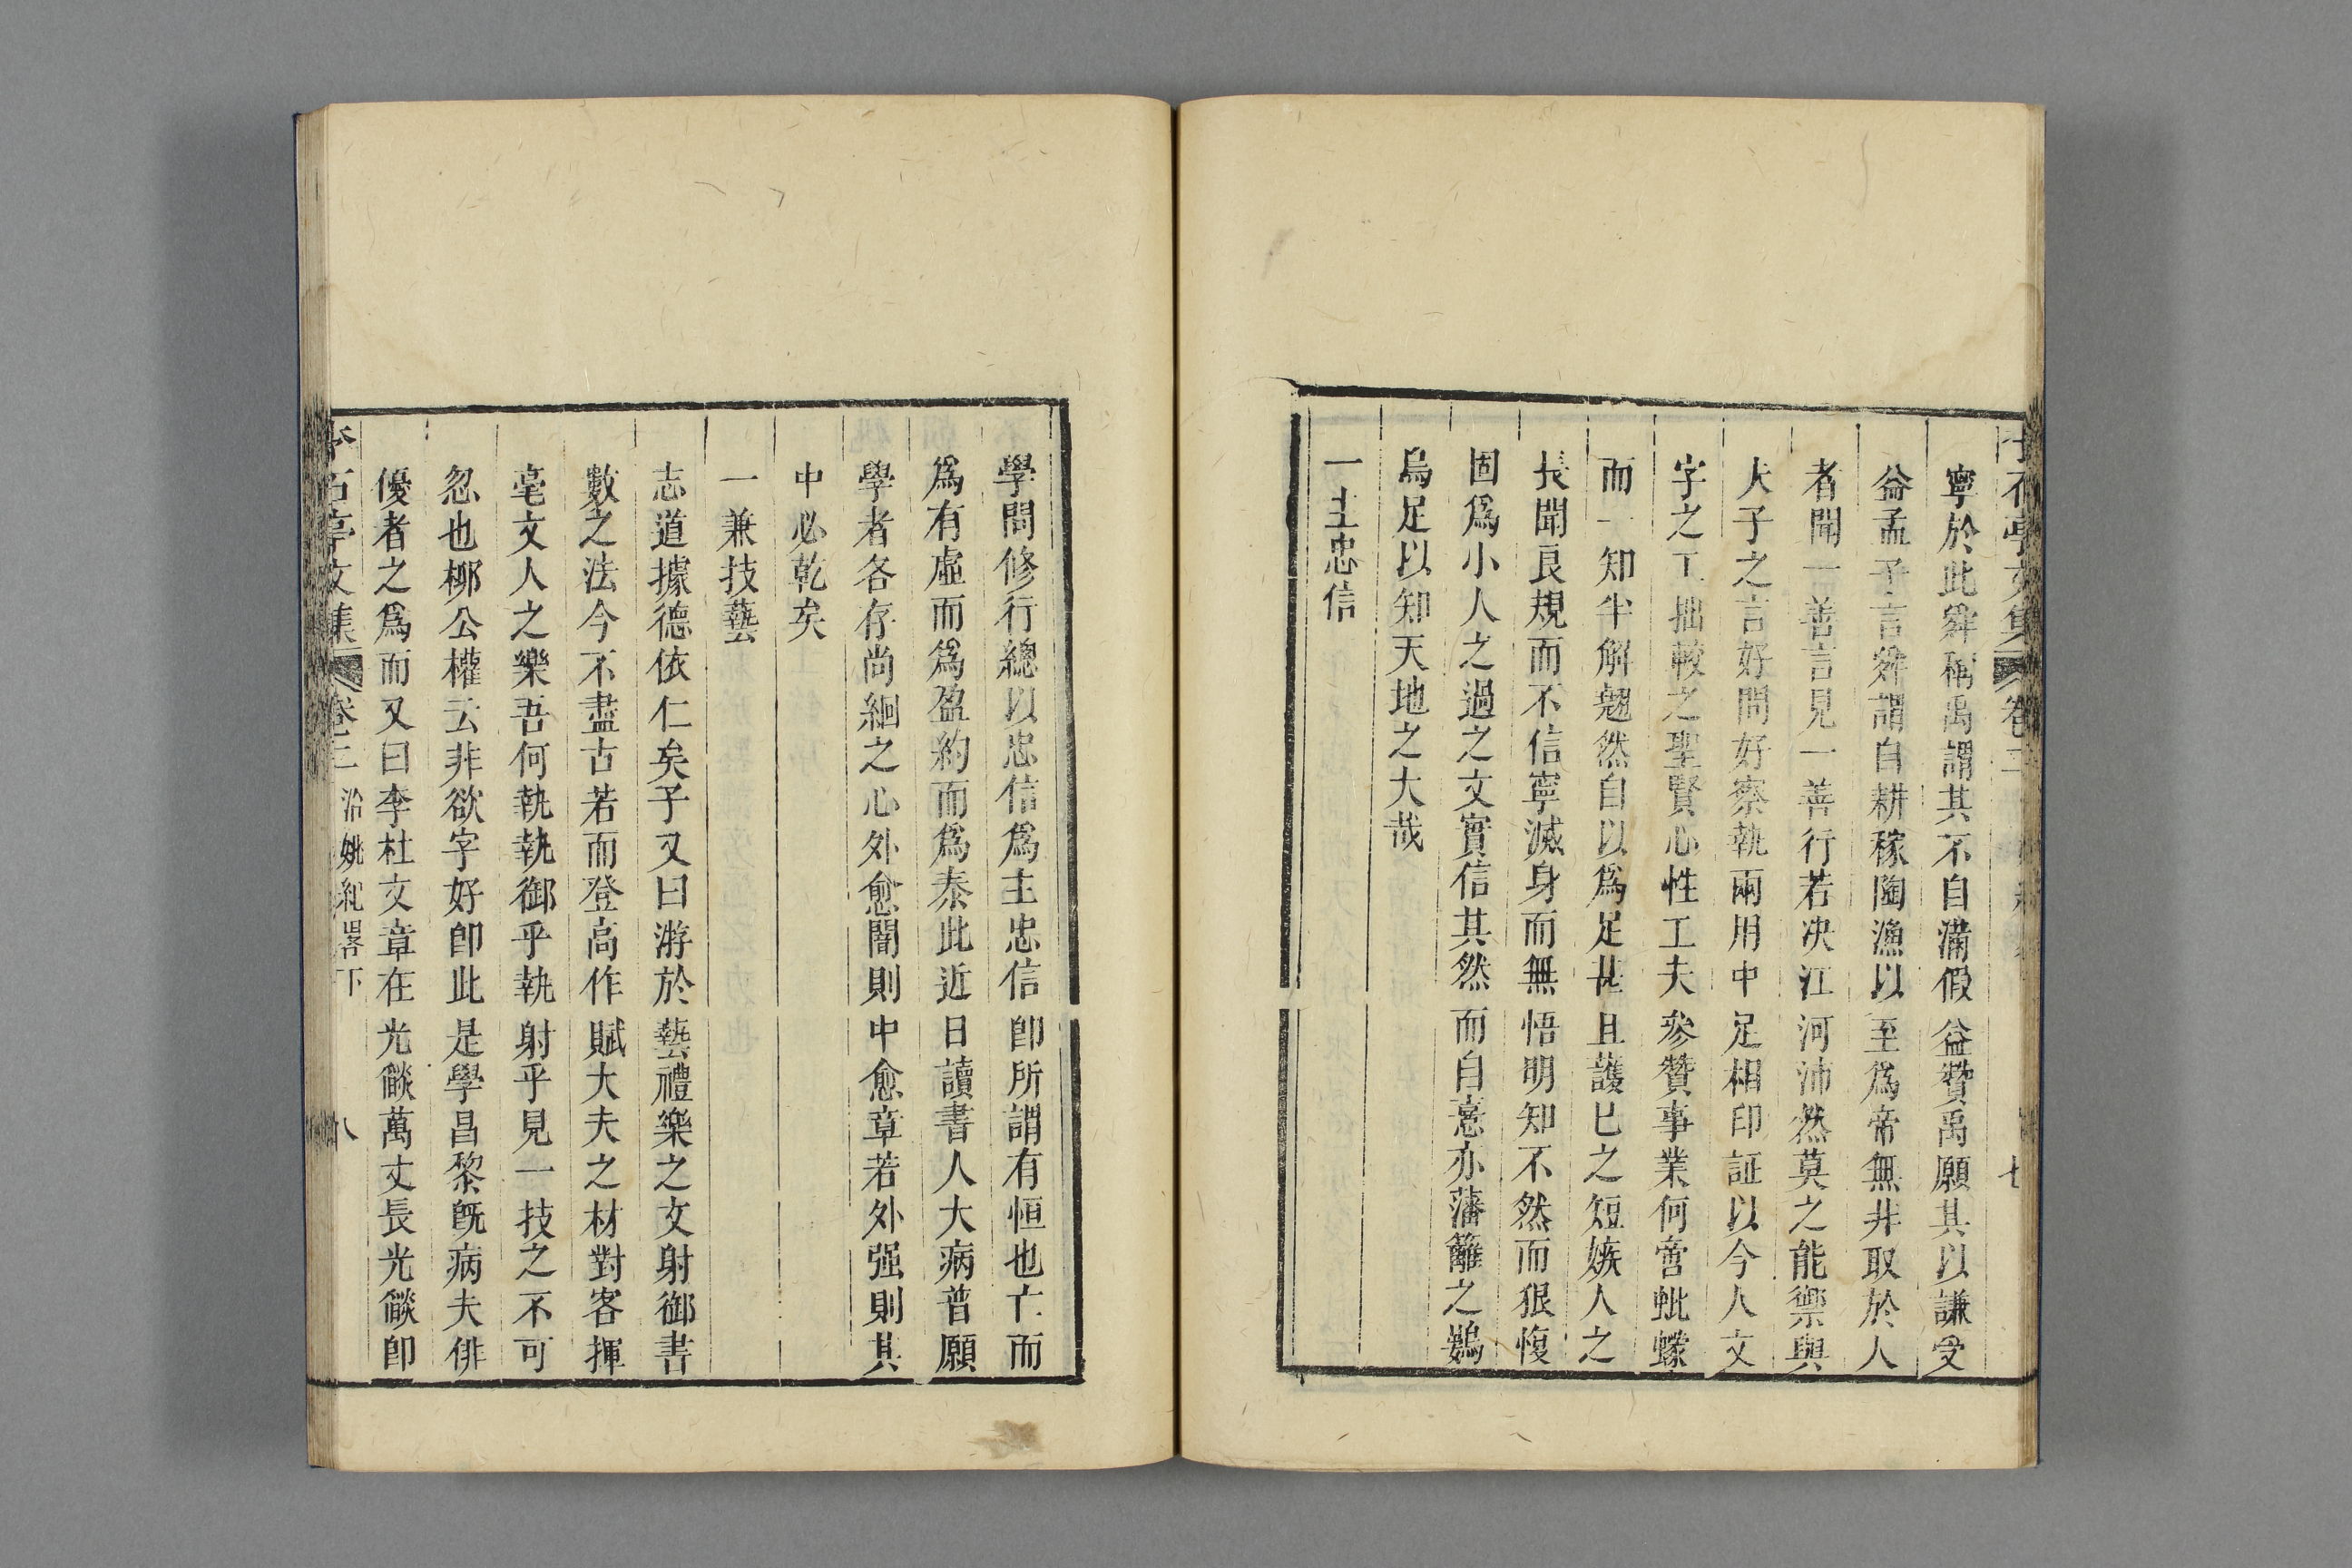 寧於此舜稱禹謂其不自滿假益贊禹願其以謙受
益孟子言舜謂自耕稼陶漁以至爲帝無非取於人
者聞一善言見一善行若決江河沛然莫之能禦與
大子之言好問好察執兩用中足相印証以今人文
字之工拙較之聖賢心性工夫參贊事業何啻蚍蠓
而一知半解翹然自以爲足甚且護已之短嫉人之
長聞良規而不信寧滅身而無悟明知不然而狠愎
固爲小人之過之文實信其然而自憙亦藩籬之鷃
烏足以知天地之大哉
一主忠信
學問修行總以忠信爲主忠信卽所謂有恒也亡而
爲有虛而爲盈約而爲泰此近日讀書人大病普願
學者各存尚絅之心外愈闇則中愈章若外强則其
中必乾矣
一兼技藝
志道據德依仁矣子又曰游於藝禮樂之文射御書
數之法今不盡古若而登高作賦大夫之材對客揮
毫文人之樂吾何執執御乎執射乎見一技之不可
忽也柳公權云非欲字好卽此是學昌黎旣病夫俳
優者之爲而又曰李杜文章在光燄萬丈長光燄卽
石亭文集 卷三 治姚紀畧下 八